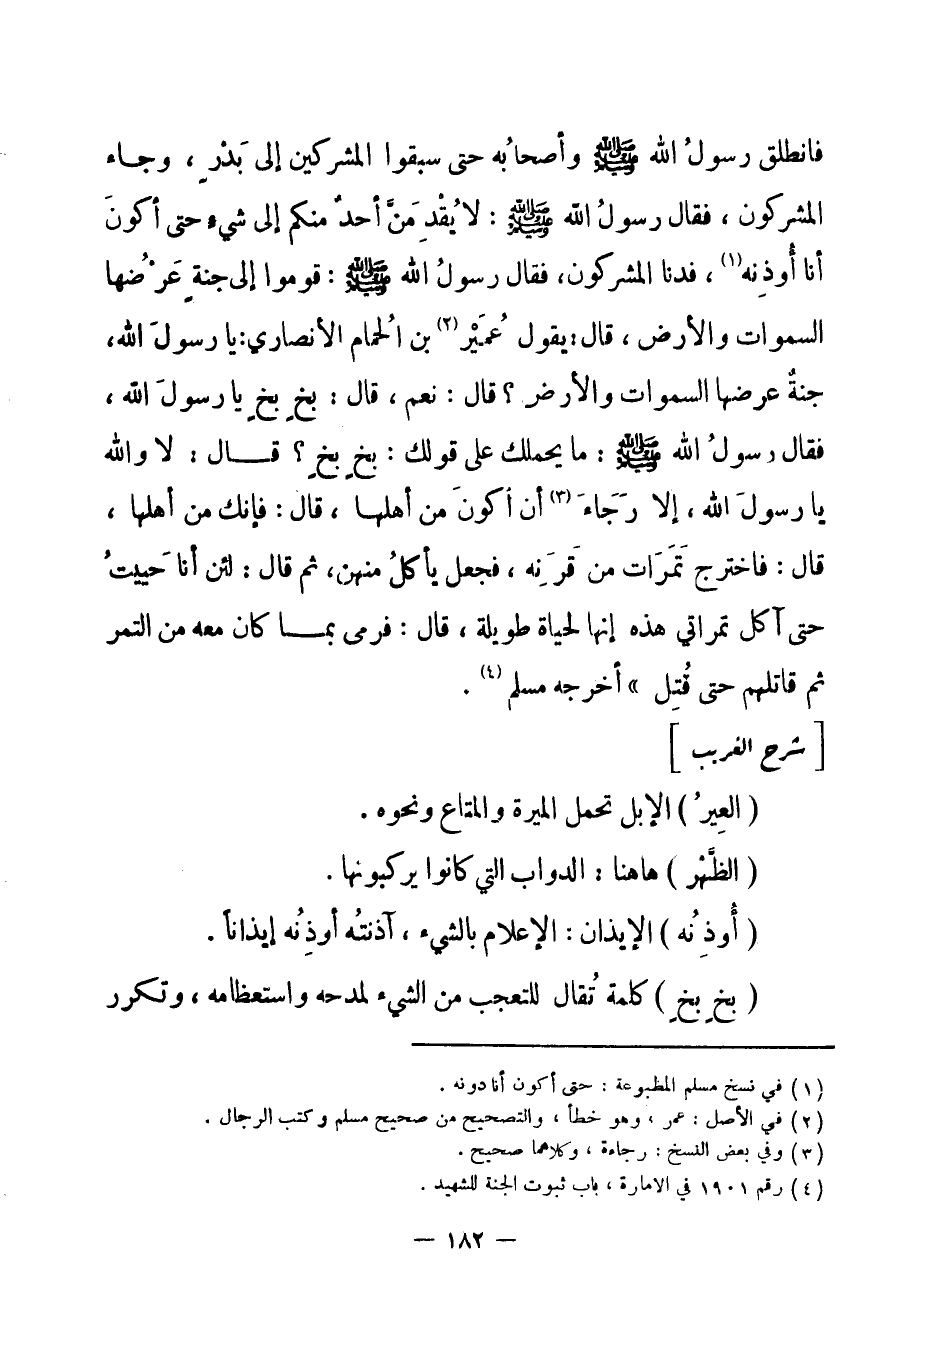 فانطلق رسولُ الله ﷺ وأصحابُه حتى سبقوا المشركين إلى بَدْرٍ ، وجاء
المشركون ، فقال رسولُ الله ﷺ : لا يُقْدِمَنَّ أحدٌ منكم إلى شيء حتى أكونَ
أنا أُوذِنه(١) ، فدنا المشركون، فقال رسولُ الله ﷺ : قوموا إلى جنةٍ عَرْضُها
السموات والأرض ، قال : يقول عُمَيْر(٢) بن الُحمام الأنصاري : يا رسولَ الله،
جنةٌ عرضها السموات والأرض ؟ قال : نعم ، قال : بخٍ بخٍ يا رسولَ الله ،
فقال رسولُ الله ﷺ : ما يحملك على قولك : بخٍ بخٍ ؟ قـــال : لا والله
يا رسولَ الله ، إلا رَجَاءَ(٣) أن أكونَ من أهلهـا ، قال : فإنك من أهلها ،
قال : فاخترج تَمَرَات من قَرَنِه ، فجعل يأكلُ منهن، ثم قال : لئن أنا حَييتُ
حتى آكل تمراتي هذه إنها لحياة طويلة ، قال : فرمى بمــا كان معه من التمر
ثم قاتلهم حتى قُتِل » أخرجه مسلم(٤) .
[ شرح الغريب ]
( العِيرُ ) الإبل تحمل الميرة والمتاع ونحوه .
( الظَّهْر ) هاهنا : الدواب التي كانوا يركبونها .
( أُوذِنُه ) الإيذان : الإعلام بالشيء ، آذنتُه أوذِنُه إيذاناً .
( بخٍ بخٍ ) كلمة تُقال للتعجب من الشيء لمدحه واستعظامه ، وتكرر
(١) في نسخ مسلم المطبوعة : حتى أكون أنا دونه .
(٢) في الأصل : عمر ، وهو خطأ ، والتصحيح من صحيح مسلم وكتب الرجال .
(٣) وفي بعض النسخ : رجاءة ، وكلاهما صحيح .
(٤) رقم ١٩٠١ في الامارة ، باب ثبوت الجنة للشهيد .
— ١٨٢ —